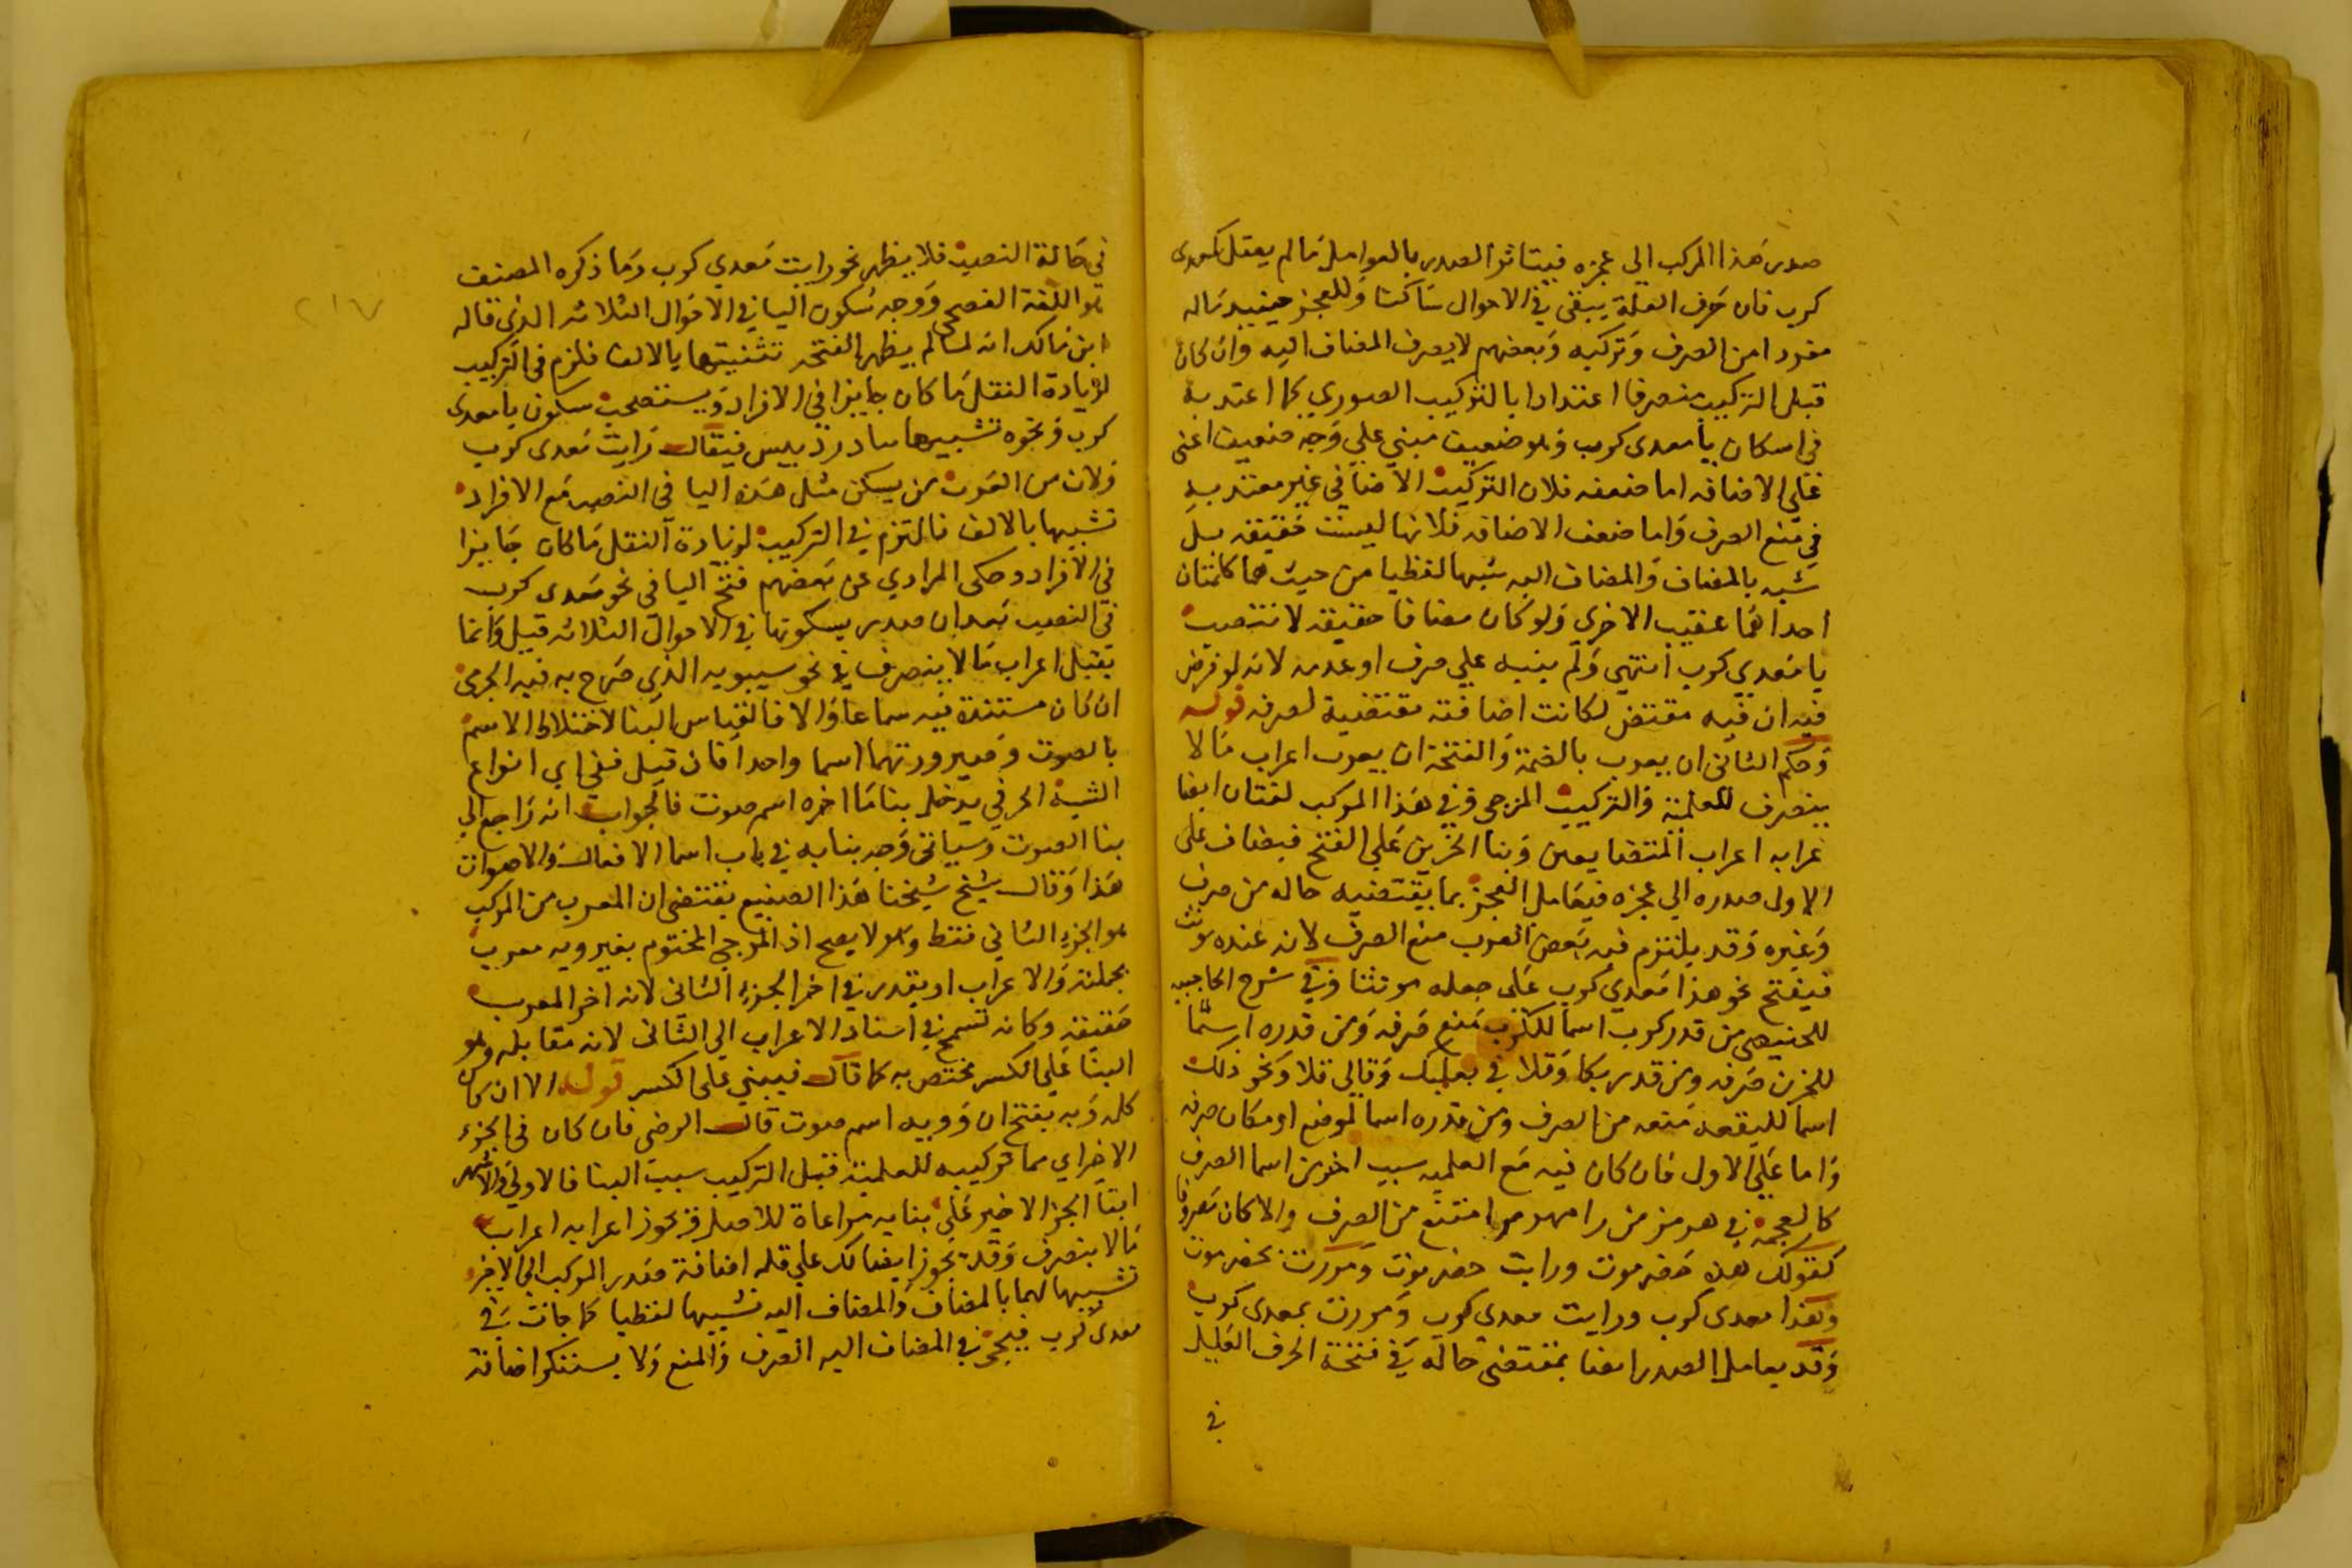 صدر هذا المركب الي عجزه فيتاثر الصدر بالعوامل ما لم يعتل كمعدي
كرب فان حرف العلة يبقي في الاحوال ساكنا وللعجز حينيد ماله
مفردا من الصرف وتركه وبعضهم لا يصرف المضاف اليه وان كان
قبل التركيب منصرفا اعتدادا بالتركيب الصوري كما اعتد به
في اسكان يا معدي كرب وهو ضعيف مبني علي وجه ضعيف اعني
علي الاضافه اما ضعفه فلان التركيب الاضافي غير معتد به
في منع الصرف واما ضعف الاضافه فلانها ليست حقيقه بل
شبه بالمضاف والمضاف اليه شبها لفظيا من حيث هما كلمتان
احداهما عقيب الاخري ولو كان مضافا حقيقه لانتصب
يا معدي كرب انتهي ولم ينبه علي صرف او عدمه لانه لو فرض
فيه ان فيه مقتض لكانت اضافته مقتضية لصرفه قوله
وحكم الثاني ان يعرب بالضمة والفتحة ان يعرب اعراب مالا
ينصرف للعلمية والتركيب المزجي وفي هذا المركب لغتان ايضا
عرابه اعراب المتضايفين وبنا الجزين علي الفتح فيضاف علي
الاولي صدره الي عجزه فيعامل العجز بما يقتضيه حاله من صرف
وغيره وقد يلتزم فيه بعض العرب منع الصرف لانه عنده مونث
فيفتح نحو هذا معدي كرب علي جعله مونثا وفي شرح الحاجبيه
للخبيصي من قدر كرب اسما للكرب منع صرفه ومن قدره اسما
للحزن صرفه ومن قدر بكا وقلا في بعلبك وقالي قلا ونحو ذلك
اسما للبقعه منعه من الصرف ومن قدره اسما لموضع او مكان صرفه
واما علي الاول فان كان فيه مع العلميه سبب اخر من اسما الصرف
كالعجمة في هرمز من رامهرمز امتنع من الصرف والا كان مصروفا
كقولك هذه حضرموت ورايت حضرموت ومررت بحضرموت
وهذا معدي كرب ورايت معدي كرب ومررت بمعدي كرب
وقد يعامل الصدر ايضا بمقتضي حاله في فتحة الحرف العليل
في
٢١٧
في حالة النصب فلا يظهر نحو رايت معدي كرب وما ذكره المصنف
هو اللغة الفصحي ووجه سكون اليا في الاحوال الثلاثه الذي قاله
ابن مالك انه لما لم يظهر الفتحه تشبيها بالالف فلزم في التركيب
لزيادة الثقل ما كان جايزا في الافراد ويستصحب سكون يا معدي
كرب ونحوه تشبيها بيا دردبيس فيقال رايت معدي كرب
ولان من العرب من يسكن مثل هذه اليا في النصب مع الافراد
تشبيها بالالف فالتزم في التركيب لزيادة الثقل ما كان جايزا
في الافراد وحكي المرادي عن بعضهم فتح اليا في نحو معدي كرب
في النصب بعد ان صدر بسكونها في الاحوال الثلاثه قيل وانما
يقبل اعراب مالا ينصرف في نحو سيبويه الذي صرح به فيه الجرمي
ان كان مستنده فيه سماعا والا فالقياس البنا لاختلاط الاسم
بالصوت وصيرورتهما اسما واحدا فان قيل ففي اي انواع
الشبه الحرفي يدخل بنا ما اخره اسم صوت فالجواب انه راجع الي
بنا الصوت وسياتي وجه بنايه في باب اسما الافعال والاصوات
هذا وقال شيخ شيخنا هذا الصنيع يقتضي ان المعرب من المركب
هو الجزء الثاني فقط وهو لا يصح اذ المزجي المختوم بغير ويه معرب
بجملته والاعراب او يقدر في اخر الجزء الثاني لانه اخر المعرب
حقيقه وكانه تسمح في اسناد الاعراب الي الثاني لانه مقابله وهو
البنا علي الكسر مختص به كما قال فيبني علي الكسر قوله الا ان كان
كلمة ويه بفتح ان وويه اسم صوت قال الرضي فان كان في الجزء
الاخير اي مما تركيبه للعلمية قبل التركيب سبب البنا فالاولي والاشهر
ابقا الجزا الاخير علي بنايه مراعاة للاصل ويجوز اعرابه اعراب
مالا ينصرف وقد يجوز ايضا لك علي قله اضافة صدر المركب الي الاخير
تشبيها لهما بالمضاف والمضاف اليه تشبيها لفظيا كما جات في
معدي كرب فيجي في المضاف اليه الصرف والمنع ولا يستنكر اضافة